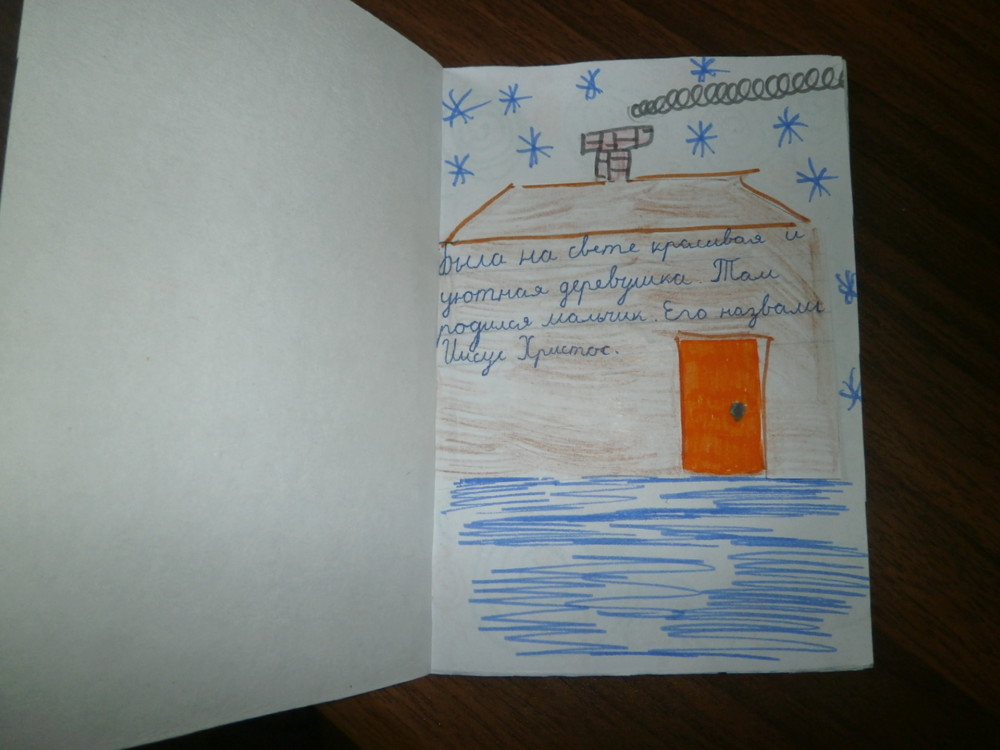 Была на свете красивая и
уютная деревушка. Там
родился мальчик. Его назвали
Иисус Христос.